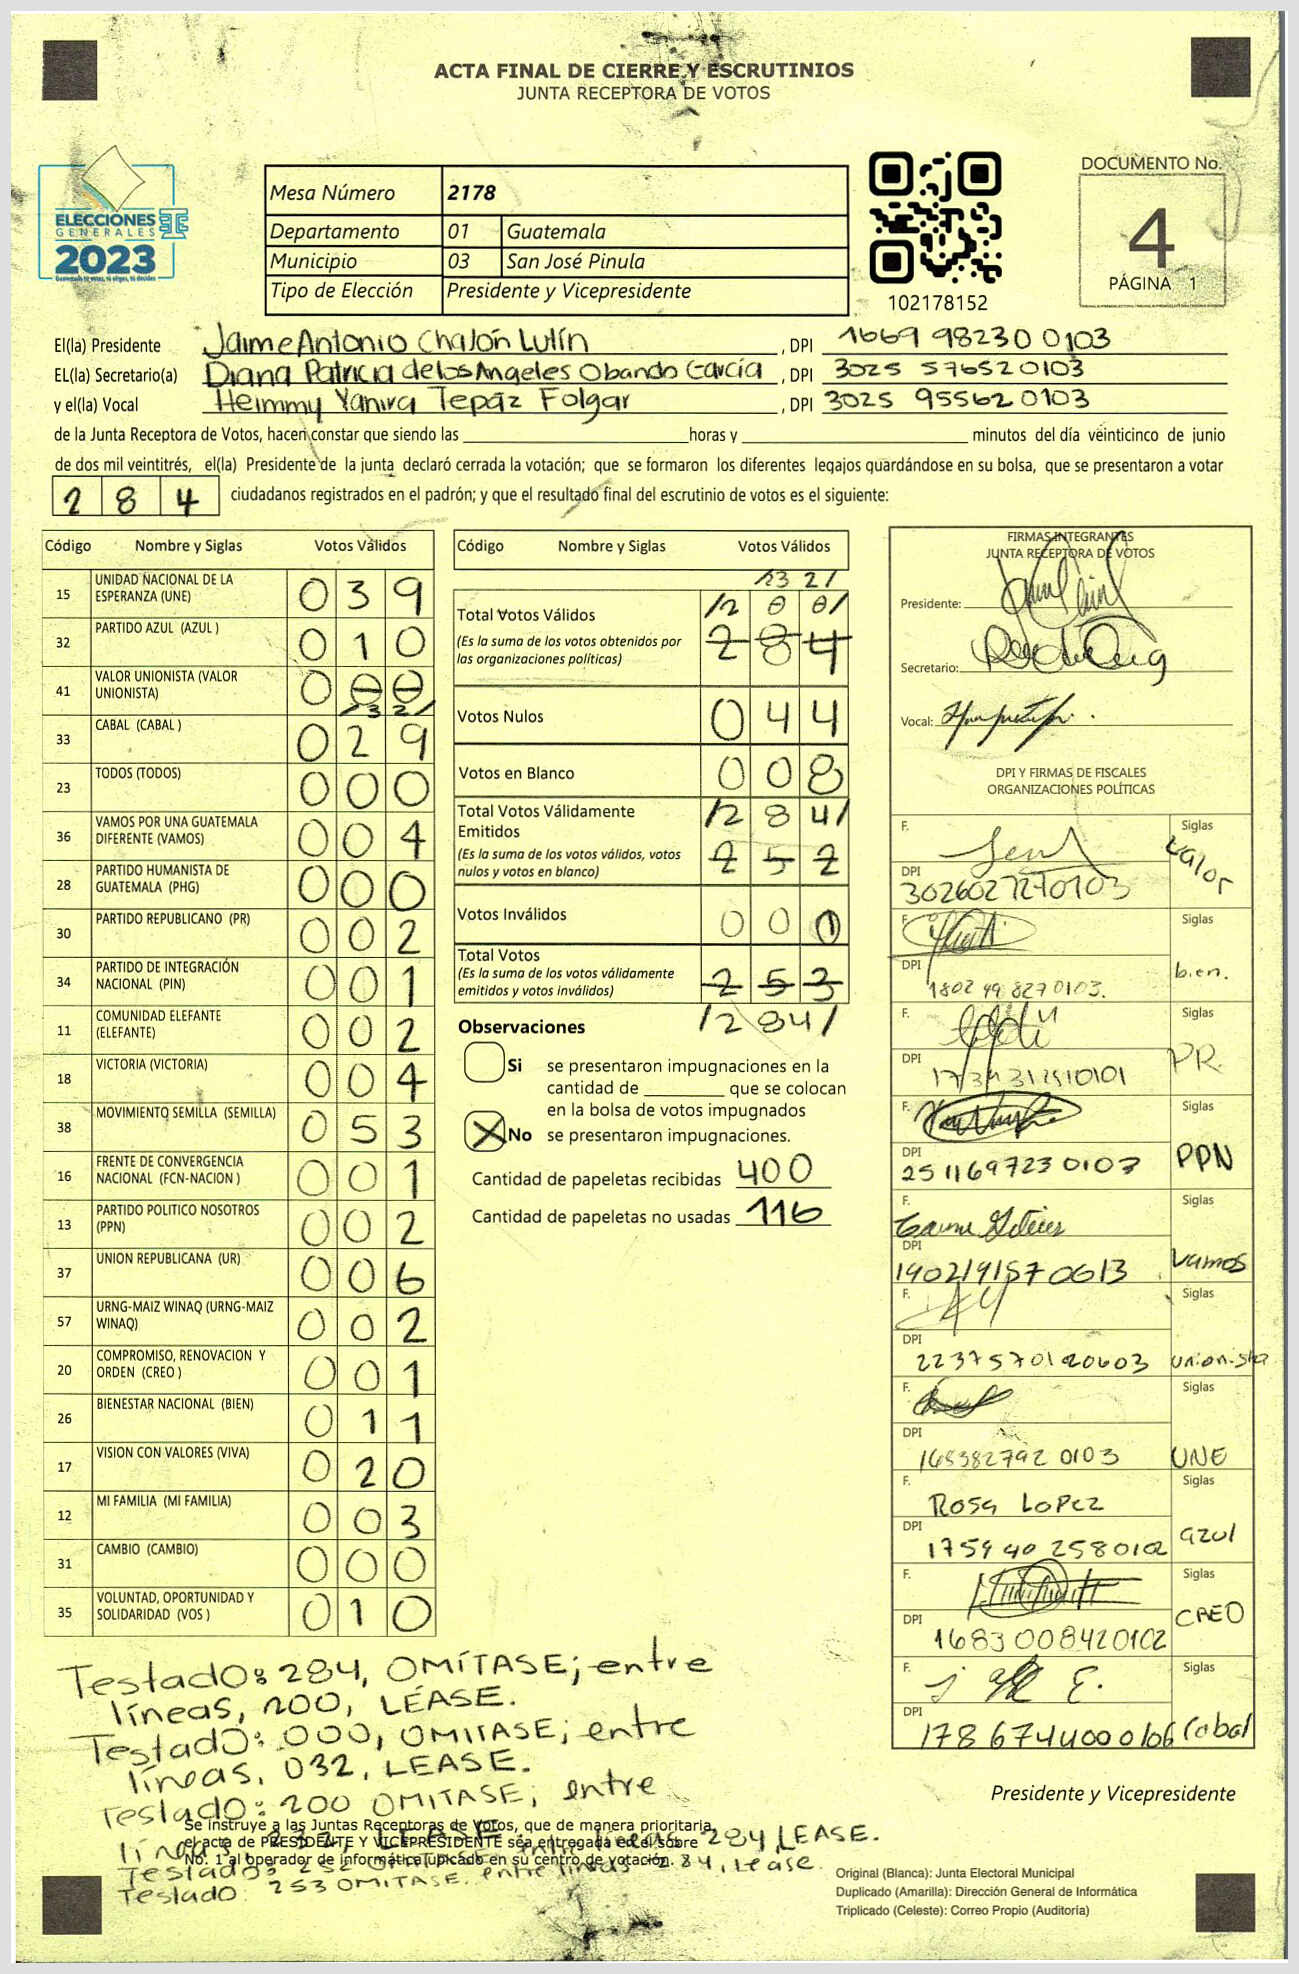 ACTA FINAL DE CIERRE Y ESCRUTINIOS
JUNTA RECEPTORA DE VOTOS
ELECCIONES
GENERALES
2023
Mesa Número 2178
Departamento 01 Guatemala
Municipio 03 San José Pinula
Tipo de Elección Presidente y Vicepresidente
102178152
DOCUMENTO No.
4
PÁGINA 1
El(la) Presidente Jaime Antonio Chalón Lutín , DPI 1669 98230 0103
EL(la) Secretario(a) Diana Patricia de los Angeles Obando García , DPI 3025 57652 0103
y el(la) Vocal Heimmy Yanira Tepáz Folgar , DPI 3025 95562 0103
de la Junta Receptora de Votos, hacen constar que siendo las horas y minutos del día veinticinco de junio
de dos mil veintitrés, el(la) Presidente de la junta declaró cerrada la votación; que se formaron los diferentes legajos guardándose en su bolsa, que se presentaron a votar
284 ciudadanos registrados en el padrón; y que el resultado final del escrutinio de votos es el siguiente:
Código Nombre y Siglas Votos Válidos
15 UNIDAD NACIONAL DE LA ESPERANZA (UNE) 0 3 9
32 PARTIDO AZUL (AZUL ) 0 1 0
41 VALOR UNIONISTA (VALOR UNIONISTA) 0 0 0
/3 2/
33 CABAL (CABAL ) 0 2 9
23 TODOS (TODOS) 0 0 0
36 VAMOS POR UNA GUATEMALA DIFERENTE (VAMOS) 0 0 4
28 PARTIDO HUMANISTA DE GUATEMALA (PHG) 0 0 0
30 PARTIDO REPUBLICANO (PR) 0 0 2
34 PARTIDO DE INTEGRACIÓN NACIONAL (PIN) 0 0 1
11 COMUNIDAD ELEFANTE (ELEFANTE) 0 0 2
18 VICTORIA (VICTORIA) 0 0 4
38 MOVIMIENTO SEMILLA (SEMILLA) 0 5 3
16 FRENTE DE CONVERGENCIA NACIONAL (FCN-NACION ) 0 0 1
13 PARTIDO POLITICO NOSOTROS (PPN) 0 0 2
37 UNION REPUBLICANA (UR) 0 0 6
57 URNG-MAIZ WINAQ (URNG-MAIZ WINAQ) 0 0 2
20 COMPROMISO, RENOVACION Y ORDEN (CREO ) 0 0 1
26 BIENESTAR NACIONAL (BIEN) 0 1 1
17 VISION CON VALORES (VIVA) 0 2 0
12 MI FAMILIA (MI FAMILIA) 0 0 3
31 CAMBIO (CAMBIO) 0 0 0
35 VOLUNTAD, OPORTUNIDAD Y SOLIDARIDAD (VOS ) 0 1 0
Código Nombre y Siglas Votos Válidos
/23 2/
Total Votos Válidos /2 0 0/
(Es la suma de los votos obtenidos por las organizaciones políticas) 2 8 4
Votos Nulos 0 4 4
Votos en Blanco 0 0 8
Total Votos Válidamente Emitidos /2 8 4/
(Es la suma de los votos válidos, votos nulos y votos en blanco) 2 5 2
Votos Inválidos 0 0 0
Total Votos
(Es la suma de los votos válidamente emitidos y votos inválidos) 2 5 3
/2 84/
Observaciones
Si se presentaron impugnaciones en la
cantidad de que se colocan
en la bolsa de votos impugnados
X No se presentaron impugnaciones.
Cantidad de papeletas recibidas 400
Cantidad de papeletas no usadas 116
FIRMAS INTEGRANTES
JUNTA RECEPTORA DE VOTOS
Presidente:
Secretario:
Vocal:
DPI Y FIRMAS DE FISCALES
ORGANIZACIONES POLÍTICAS
F. Siglas
valor
DPI
3026027270103
F. Siglas
DPI bien.
1802 49 827 0103.
F. Siglas
DPI PR.
F. Siglas
DPI PPN
2511697230103
F. Siglas
DPI vamos
1902191570613
F. Siglas
DPI
2237570120603 unionista
F. Siglas
DPI
165382792 0103 UNE
F. Siglas
Rosa Lopez
DPI azul
1759 40 258 0102
F. Siglas
DPI CREO
1683 008420102
F. Siglas
DPI
178 6744000106 Cabal
Testado: 284, OMÍTASE; entre
líneas, 200, LÉASE.
Testado: 000, OMITASE; entre
líneas, 032, LEASE.
Testado: 200 OMITASE; entre
líneas 232, LEASE. entre líneas 284, LEASE.
Testado: 252 OMITASE entre líneas 284, Lease.
Testado: 253 OMITASE.
Se instruye a las Juntas Receptoras de Votos, que de manera prioritaria,
el acta de PRESIDENTE Y VICEPRESIDENTE sea entregada en el sobre
No. 1 al operador de informática ubicado en su centro de votación.
Presidente y Vicepresidente
Original (Blanca): Junta Electoral Municipal
Duplicado (Amarilla): Dirección General de Informática
Triplicado (Celeste): Correo Propio (Auditoría)